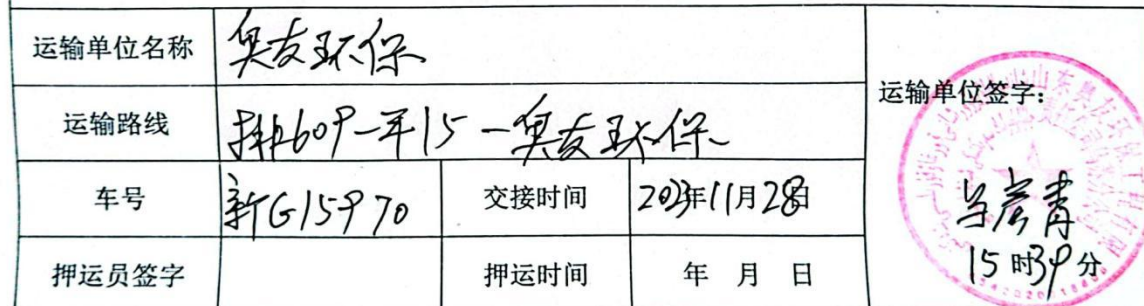 运输单位名称 奥友环保
运输单位签字:
运输路线 排609-平15-奥友环保
车号 新G15970 交接时间 2023年11月28日
15时39分
押运员签字 押运时间 年 月 日